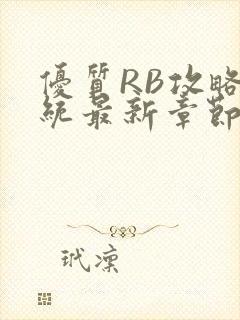 優質RB攻略
統最新章節
玳凜